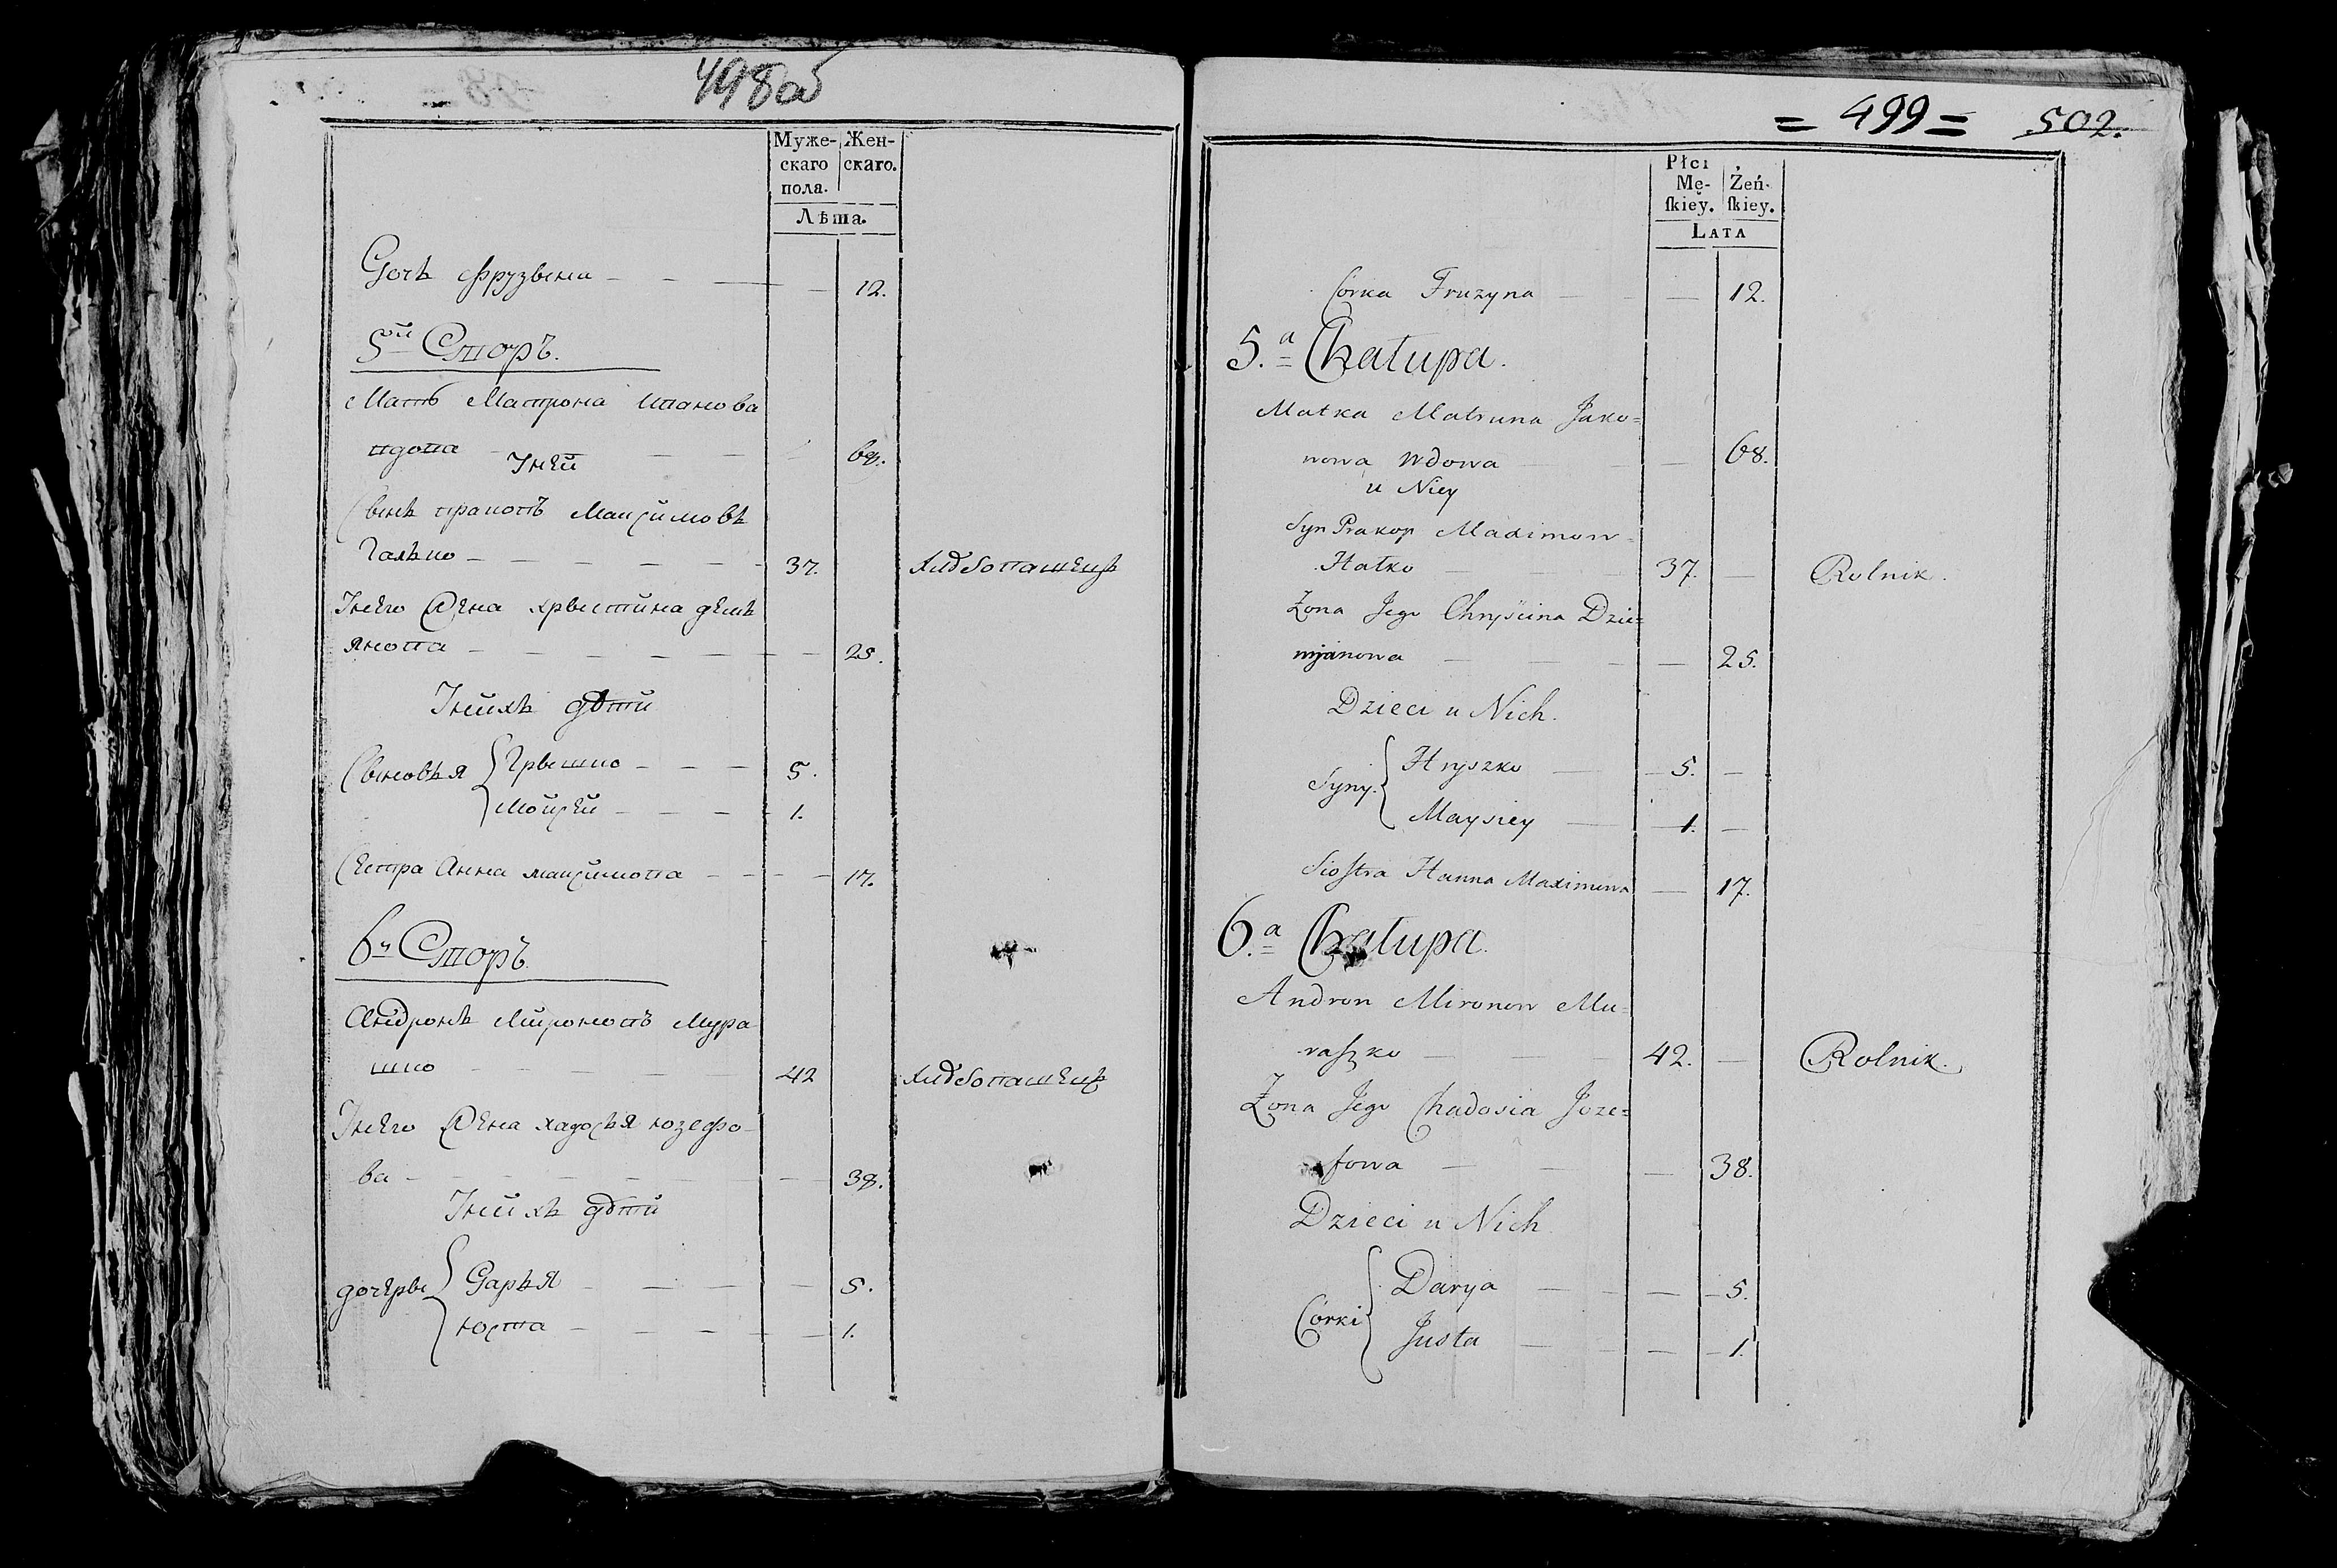 498об
Муже- Жен-
скаго скаго.
пола.
Лѣта.
Дочь Фрузына — — — — 12.
5ой Дворъ.
Мать Матрона
вдова — — — 68.
У ней
Сынъ Максимовъ
Галько — — — — — 37. Хлѣбопашецъ
У него Жена Хрыстина Демь
янова — — — — — — 25.
У нихъ дѣти
Сыновья Грышко — — — 5.
Мойсей — — — 1.
Сестра Анна Максимова — — — 17.
6й Дворъ
Андронъ Мироновъ Мура
шко — — — — — 42 Хлѣбопашецъ
У него Жена Хадосья Юзефо
ва — — — — — — 38.
У нихъ дѣти
дочеры Дарья — — — — 5.
Юста — — — — — 1.
= 499 = 502.
Płci
Mę- Żeń-
ſkiey. ſkiey.
LATA
Córka Fruzyna — — — 12.
5.a Chałupa.
Matka Matruna Jako=
wowa Wdowa — — — 68.
u Niey
Syn Prakop Maximow
Hałko — — — 37. — Rolnik.
Żona Jego Chryścina Dzie=
mjanowa — — — — 25.
Dzieci u Nich.
Syny. Hryszko — — 5. —
Maysiey — — 1. —
Sioſtra Hanna Maximowa — 17.
6.a Chałupa.
Andron Mironow Mu=
raſzko — — — 42. — Rolnik.
Żona Jego Chadosia Joze=
fowa — — — 38.
Dzieci u Nich
Córki Darya — — — — 5.
Justa — — — — 1.